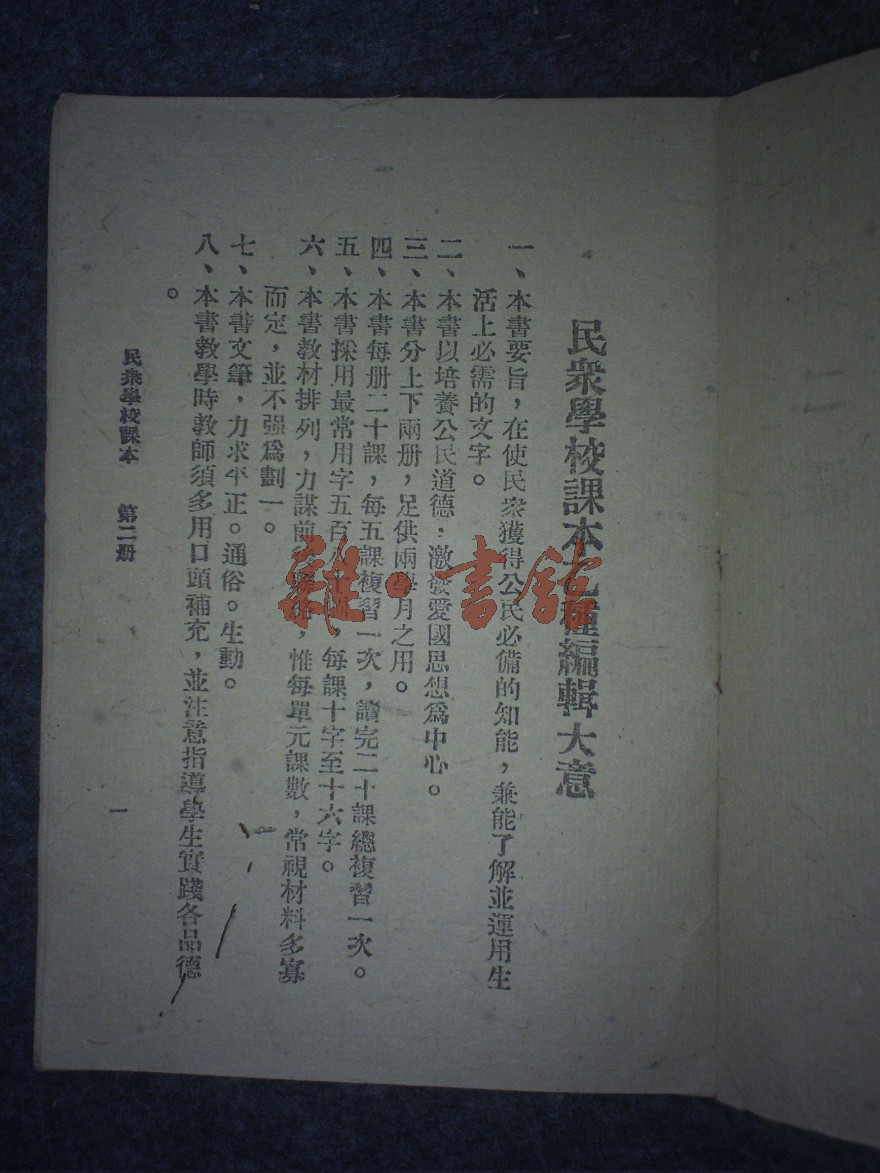 民衆學校課本乙種編輯大意
一、本書要旨，在使民衆獲得公民必備的知能，兼能了解並運用生
活上必需的文字。
二、本書以培養公民道德，激發愛國思想爲中心。
三、本書分上下兩册，足供兩學月之用。
四、本書每册二十課，每五課複習一次，讀完二十課總複習一次。
五、本書採用最常用字五百，每課十字至十六字。
六、本書教材排列，力謀前，惟每單元課數，常視材料多寡
而定，並不强爲劃一。
七、本書文筆，力求平正。通俗。生動。
八、本書教學時教師須多用口頭補充，並注意指導學生實踐各品德
。
民衆學校課本 第二册
一
雜·書館